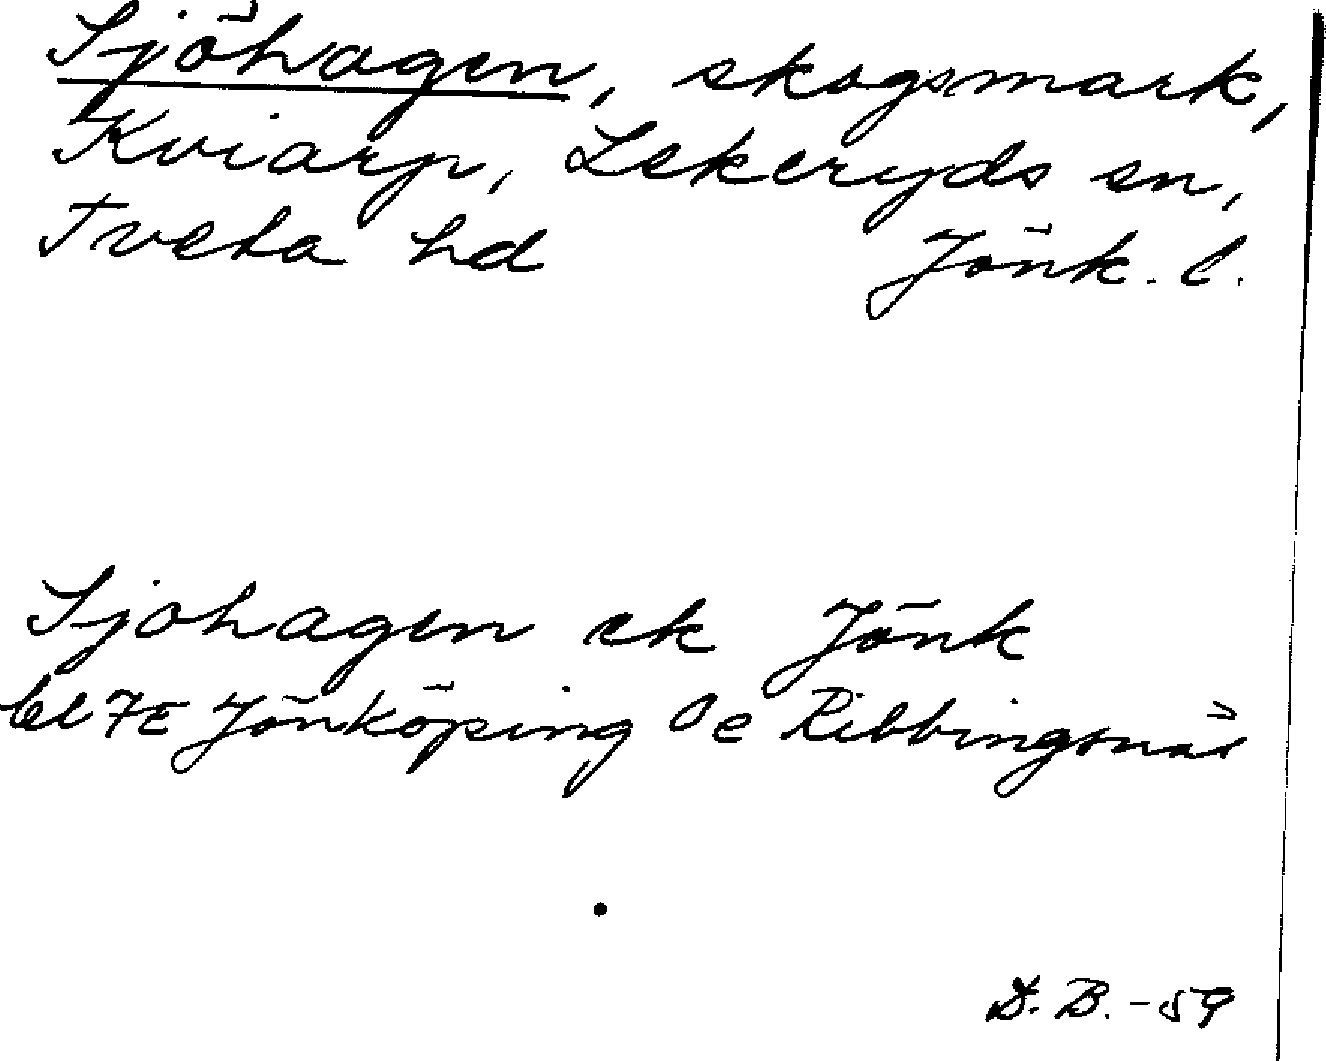 Sjöhagen, skogsmark,
Kviarp, Lekeryds sn,
Tveta hd Jönk. l.
Sjöhagen ek Jönk
bl 7E Jönköping 0e Ribbingsnäs
D. B. -59